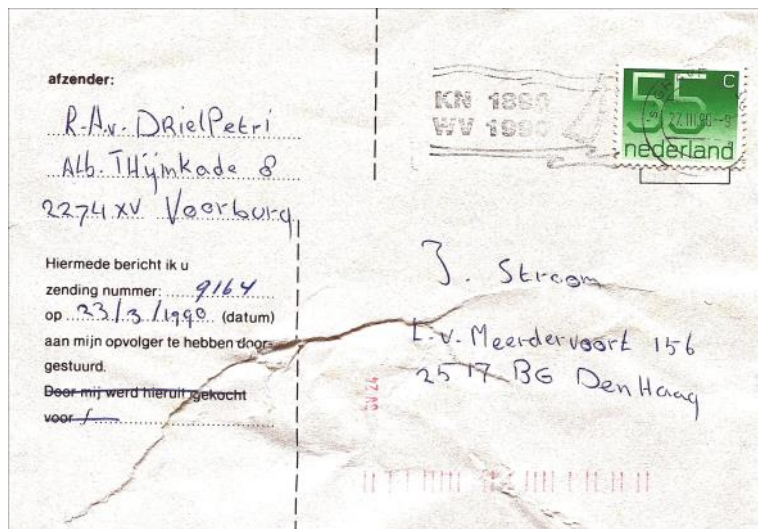 afzender:
R.A.v. DRielPetri
Alb. THijmkade 8
2274 XV Voorburg
Hiermede bericht ik u
zending nummer: 9164
op 23/3/1990 (datum)
aan mijn opvolger te hebben door-
gestuurd.
Door mij werd hieruit gekocht
voor f
KN 1890
WV 1990
55 c
27.III.90.-9
nederland
J. Stroom
L.v. Meerdervoort 156
2517 BG Den Haag